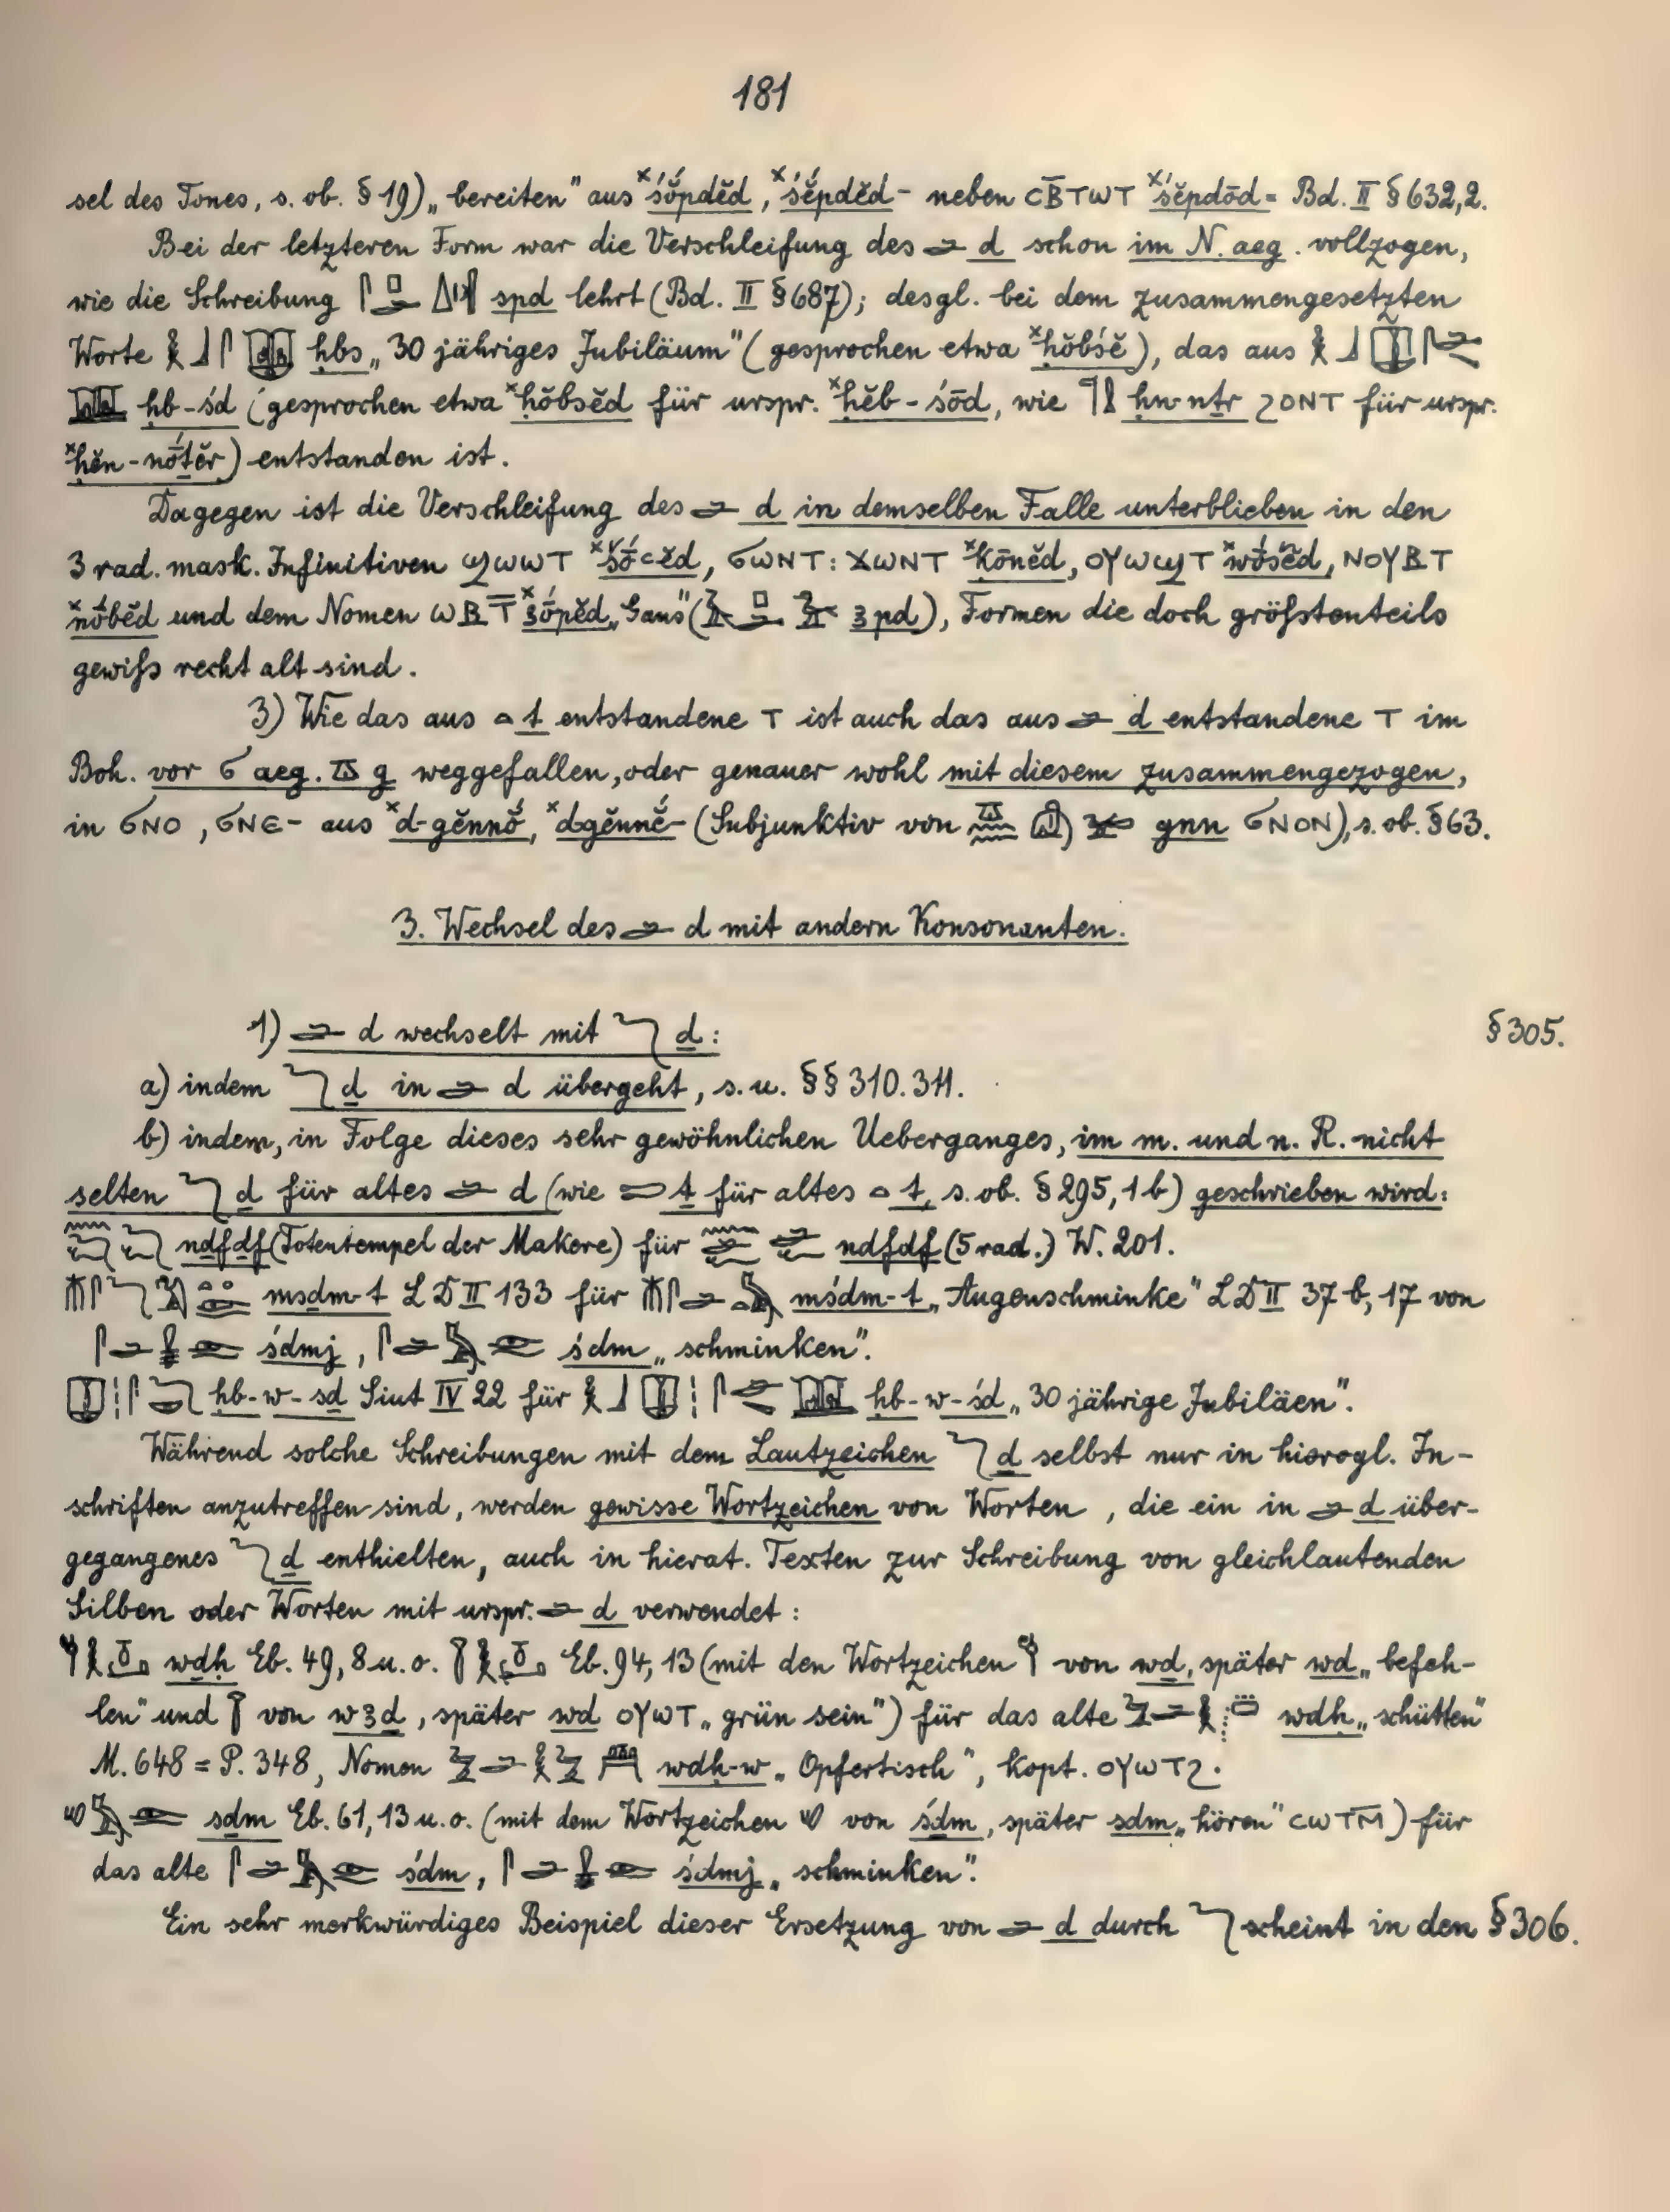 181
sel des Tones, s. ob. § 19) „bereiten" aus ˣśŏ́pdĕd, ˣśĕ́pdĕd- neben ⲤⲂ̄ⲦⲰⲦ ˣśĕpdōd= Bd. II § 632,2.
Bei der letzteren Form war die Verschleifung des 𓂧 d schon im N. aeg. vollzogen,
wie die Schreibung spd lehrt (Bd. II § 687); desgl. bei dem zusammengesetzten
Worte ḥbs „30 jähriges Jubiläum" (gesprochen etwa ˣḥŏ́bśĕ), das aus
ḥb-śd (gesprochen etwa ˣḥŏ́bsĕd für urspr. ˣḥĕb-śōd, wie 𓊹𓍛 ḥn-nṯr ϨⲞⲚⲦ für urspr.
ˣḥĕn-nṓṯĕr) entstanden ist.
Dagegen ist die Verschleifung des 𓂧 d in demselben Falle unterblieben in den
3 rad. mask. Infinitiven ϢⲰⲰⲦ ˣšṓꜥĕd, ϬⲰⲚⲦ : ϪⲰⲚⲦ ˣḳōnĕd, ⲞⲨⲰϢⲦ ˣwṓšĕd, ⲚⲞⲨⲂⲦ
ˣnṓbĕd und dem Nomen ⲰⲂⲦ̄ ˣꜣṓpĕd „Gans" (ꜣpd), Formen die doch größtenteils
gewiß recht alt sind.
3) Wie das aus 𓏏 t entstandene Ⲧ ist auch das aus 𓂧 d entstandene Ⲧ im
Boh. vor Ϭ aeg. 𓎼 g weggefallen, oder genauer wohl mit diesem zusammengezogen,
in ϬⲚⲞ, ϬⲚⲈ- aus ˣd-gĕnnŏ́, ˣdgĕnnĕ́- (Subjunktiv von gnn ϬⲚⲞⲚ), s. ob. § 63.
3. Wechsel des 𓂧 d mit andern Konsonanten.
1) 𓂧 d wechselt mit 𓆓 ḏ: § 305.
a) indem 𓆓 ḏ in 𓂧 d übergeht, s. u. §§ 310. 311.
b) indem, in Folge dieses sehr gewöhnlichen Ueberganges, im m. und n. R. nicht
selten 𓆓 ḏ für altes 𓂧 d (wie 𓍿 ṯ für altes 𓏏 t, s. ob. § 295, 1 b) geschrieben wird:
𓈖𓆓𓆑𓆓𓆑 nḏfḏf (Totentempel der Makere) für 𓈖𓂧𓆑𓂧𓆑 ndfdf (5 rad.) W. 201.
msḏm-t LD II 133 für mśdm-t „Augenschminke" LD II 37 b, 17 von
śdmj, śdm „schminken".
ḥb-w-sḏ Siut IV 22 für ḥb-w-śd „30 jährige Jubiläen".
Während solche Schreibungen mit dem Lautzeichen 𓆓 ḏ selbst nur in hierogl. In-
schriften anzutreffen sind, werden gewisse Wortzeichen von Worten, die ein in 𓂧 d über-
gegangenes 𓆓 ḏ enthielten, auch in hierat. Texten zur Schreibung von gleichlautenden
Silben oder Worten mit urspr. 𓂧 d verwendet:
wḏḥ Eb. 49, 8 u. o. Eb. 94, 13 (mit den Wortzeichen 𓎗 von wḏ, später wd „befeh-
len" und 𓇅 von wꜣḏ, später wd ⲞⲨⲰⲦ „grün sein") für das alte wdḥ „schütten"
M. 648 = P. 348, Nomen wdḥ-w „Opfertisch", kopt. ⲞⲨⲰⲦϨ.
sḏm Eb. 61, 13 u. o. (mit dem Wortzeichen 𓄔 von śḏm, später sdm „hören" ⲤⲰⲦⲘ̄) für
das alte śdm, śdmj „schminken".
Ein sehr merkwürdiges Beispiel dieser Ersetzung von 𓂧 d durch 𓆓 scheint in den § 306.